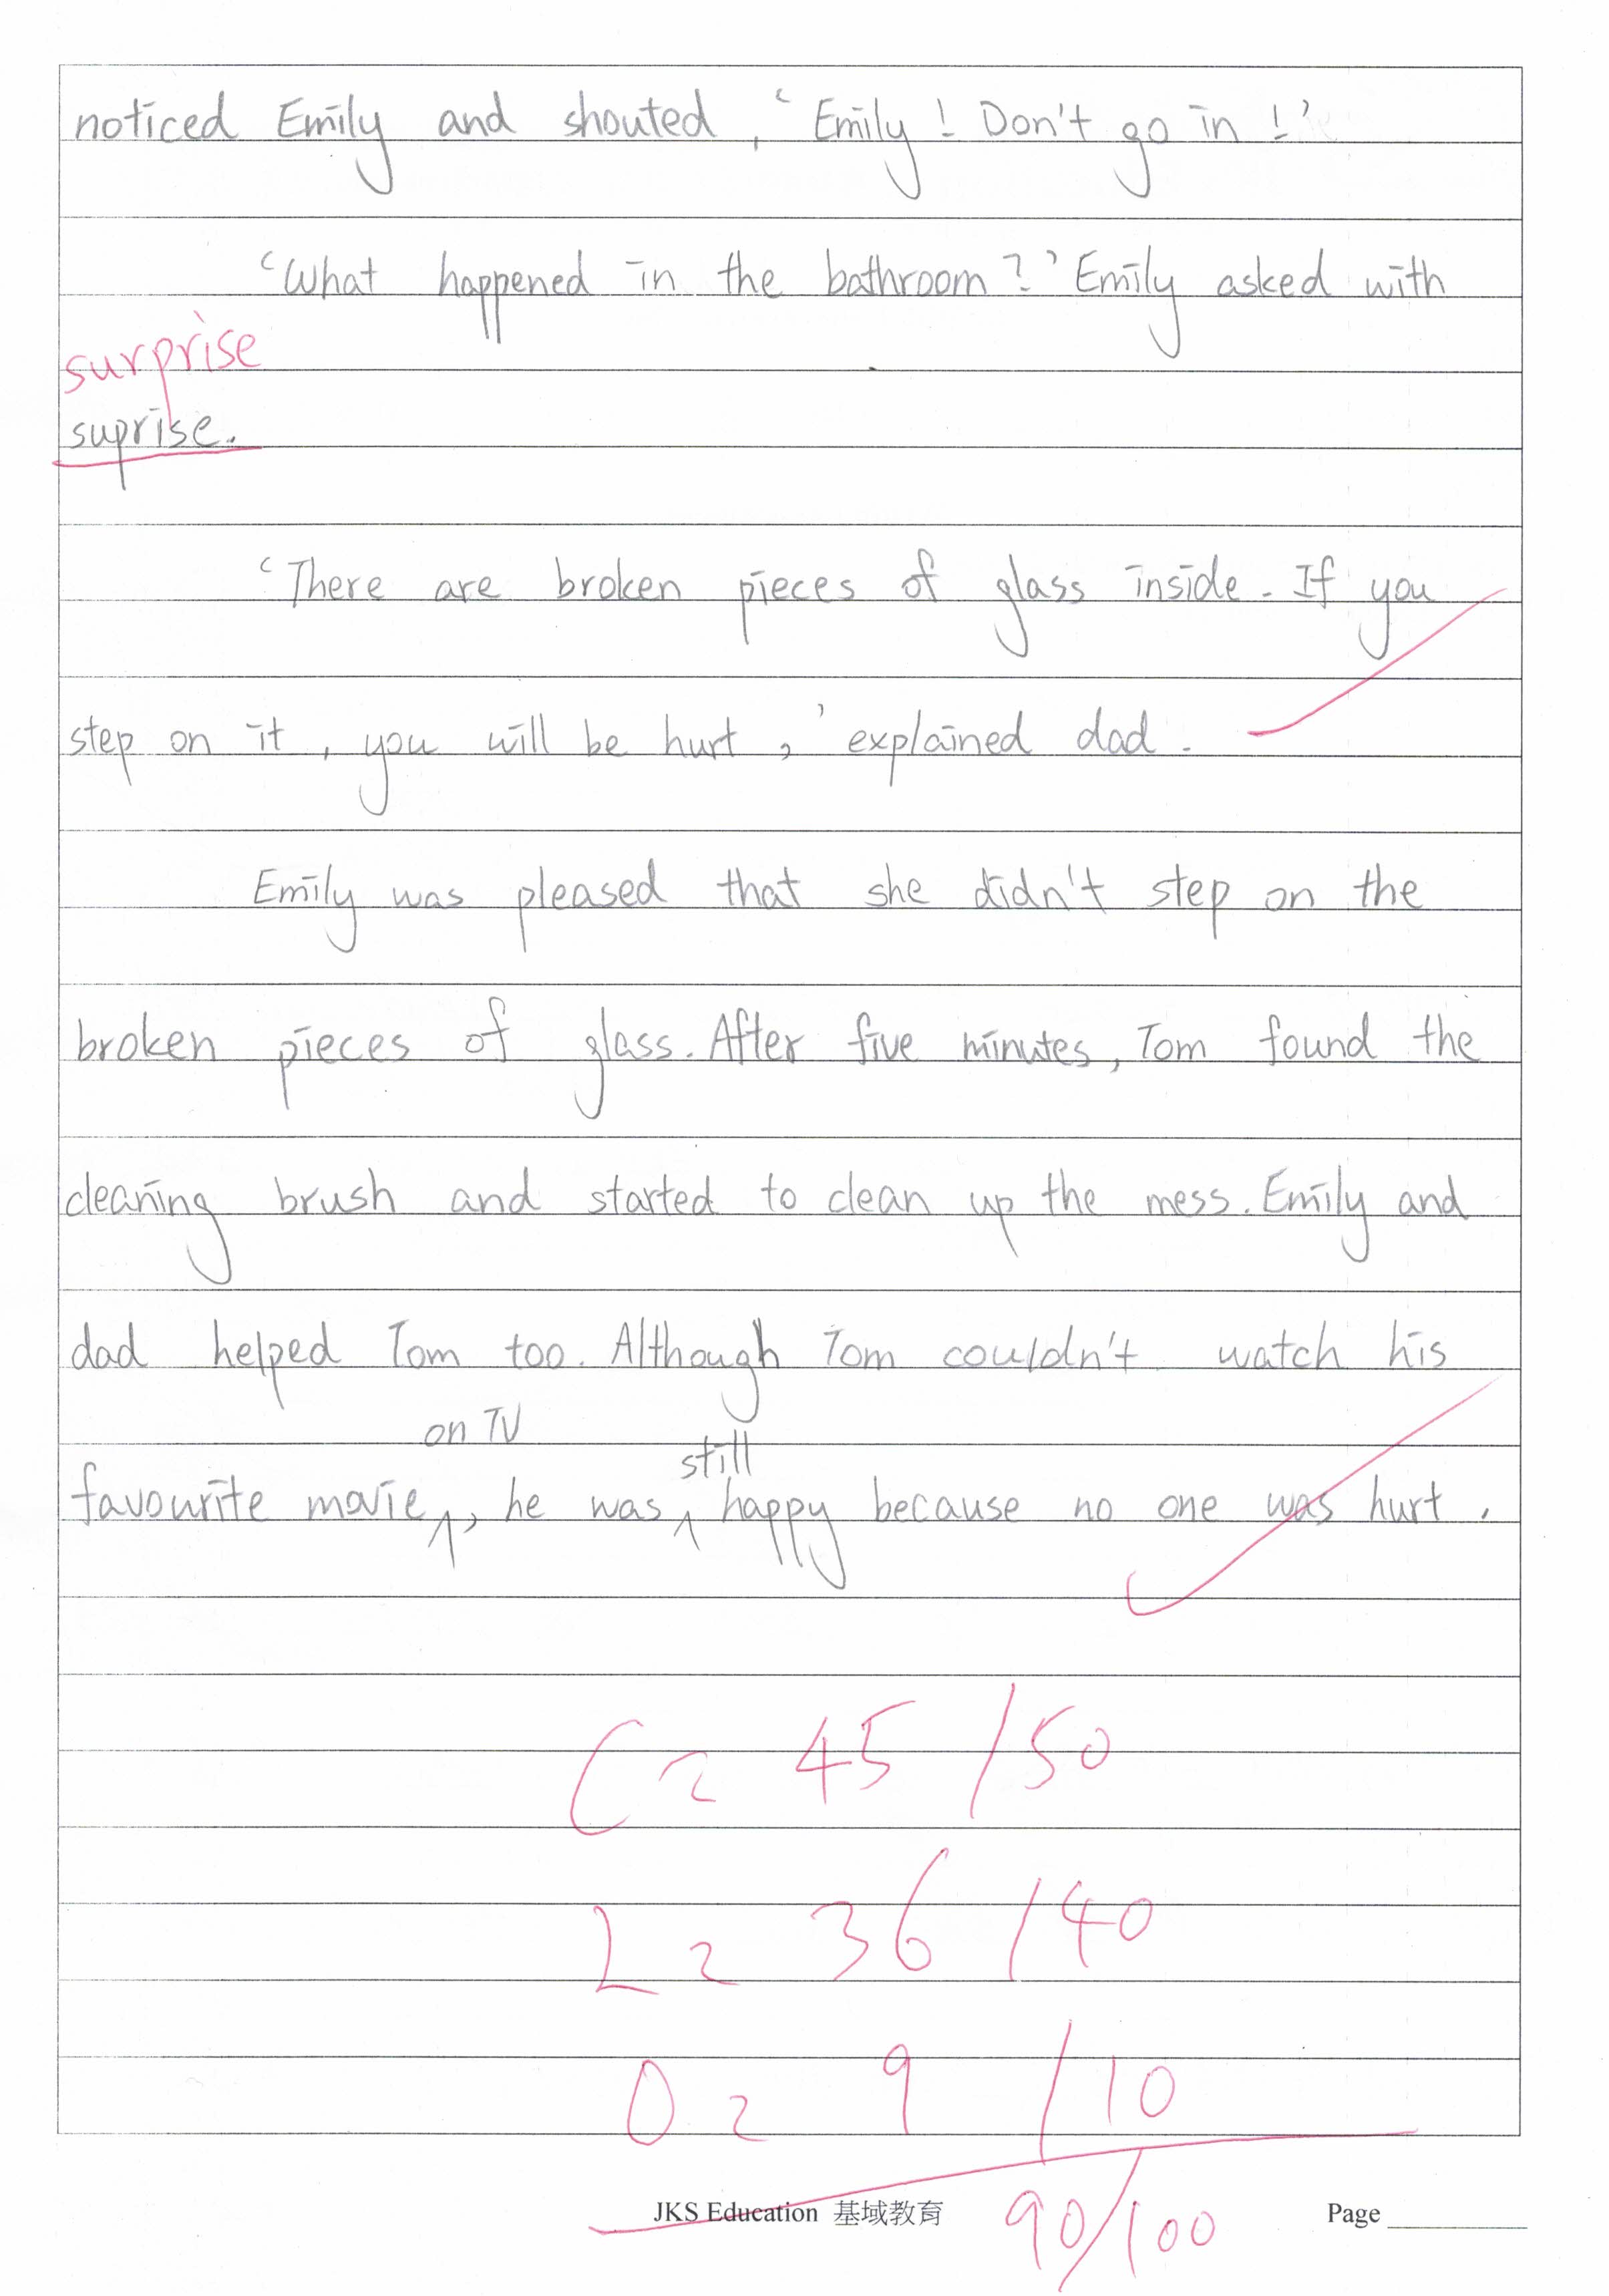 noticed Emily and shouted, ‘Emily! Don't go in!’
‘What happened in the bathroom?’ Emily asked with
surprise
suprise.
‘There are broken pieces of glass inside. If you
step on it, you will be hurt,’ explained dad.
Emily was pleased that she didn't step on the
broken pieces of glass. After five minutes, Tom found the
cleaning brush and started to clean up the mess. Emily and
dad helped Tom too. Although Tom couldn't watch his
on TV still
favourite movie, he was happy because no one was hurt.
C = 45/50
L = 36/40
O = 9/10
90/100
JKS Education 基域教育 Page